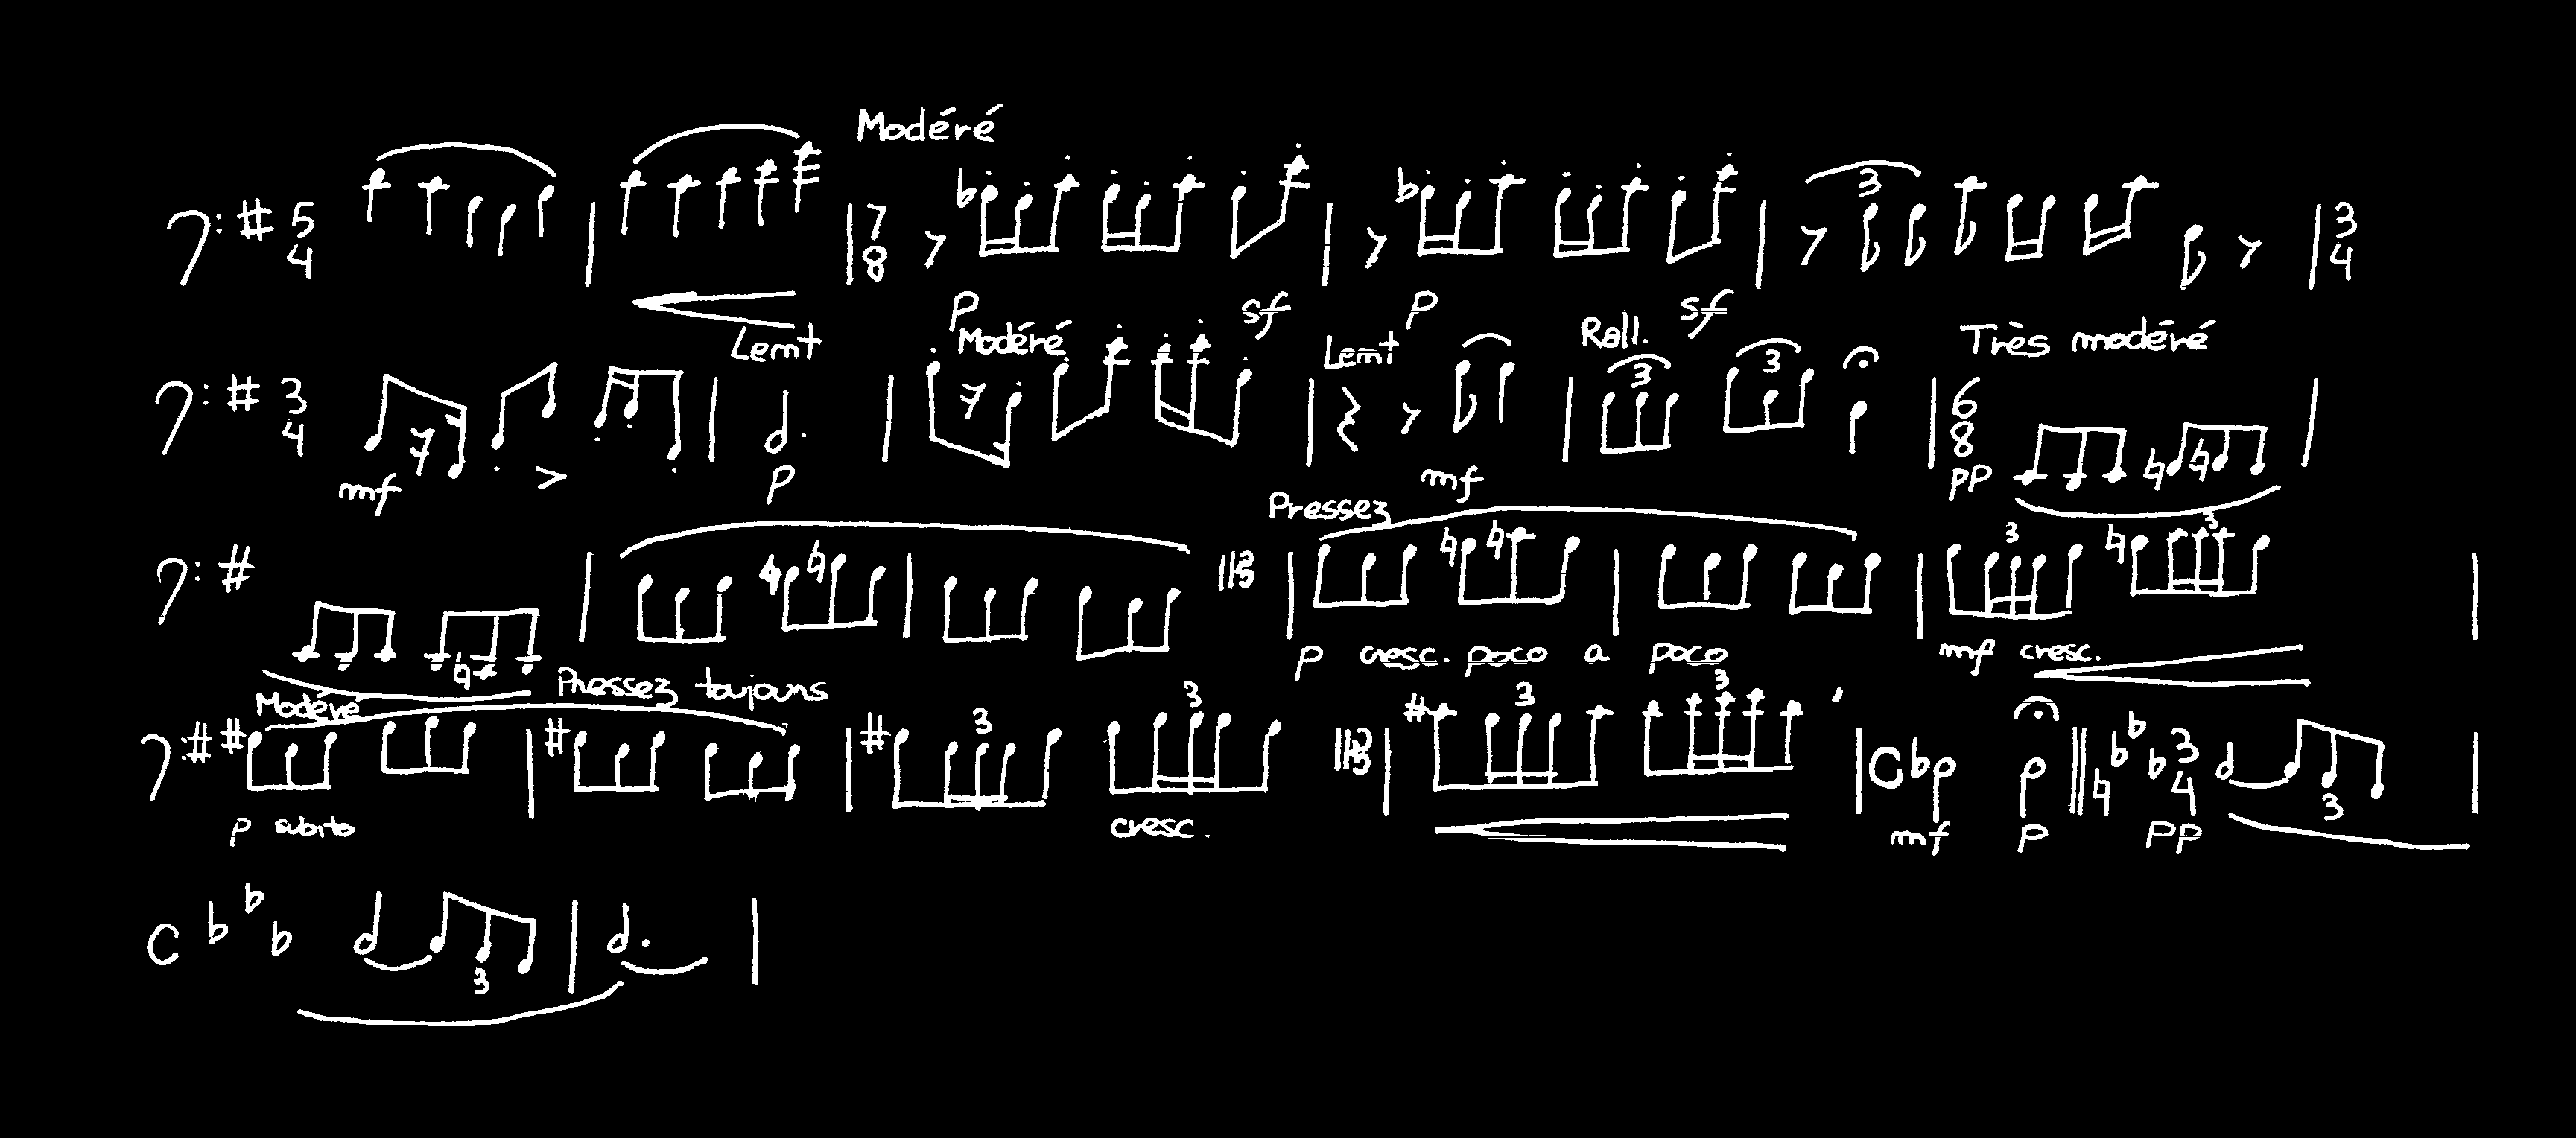 Modéré
5 4 7 8 3 3 4
p sf p sf
Lemt Modéré Lemt Rall. Très modéré
3 4 3 3 6 8
mf p mf pp
Pressez
3 3
p cresc. poco a poco mf cresc.
Modéré Pressez toujours
3 3 3 3 C 3 4 3
p subito cresc. mf p pp
C 3